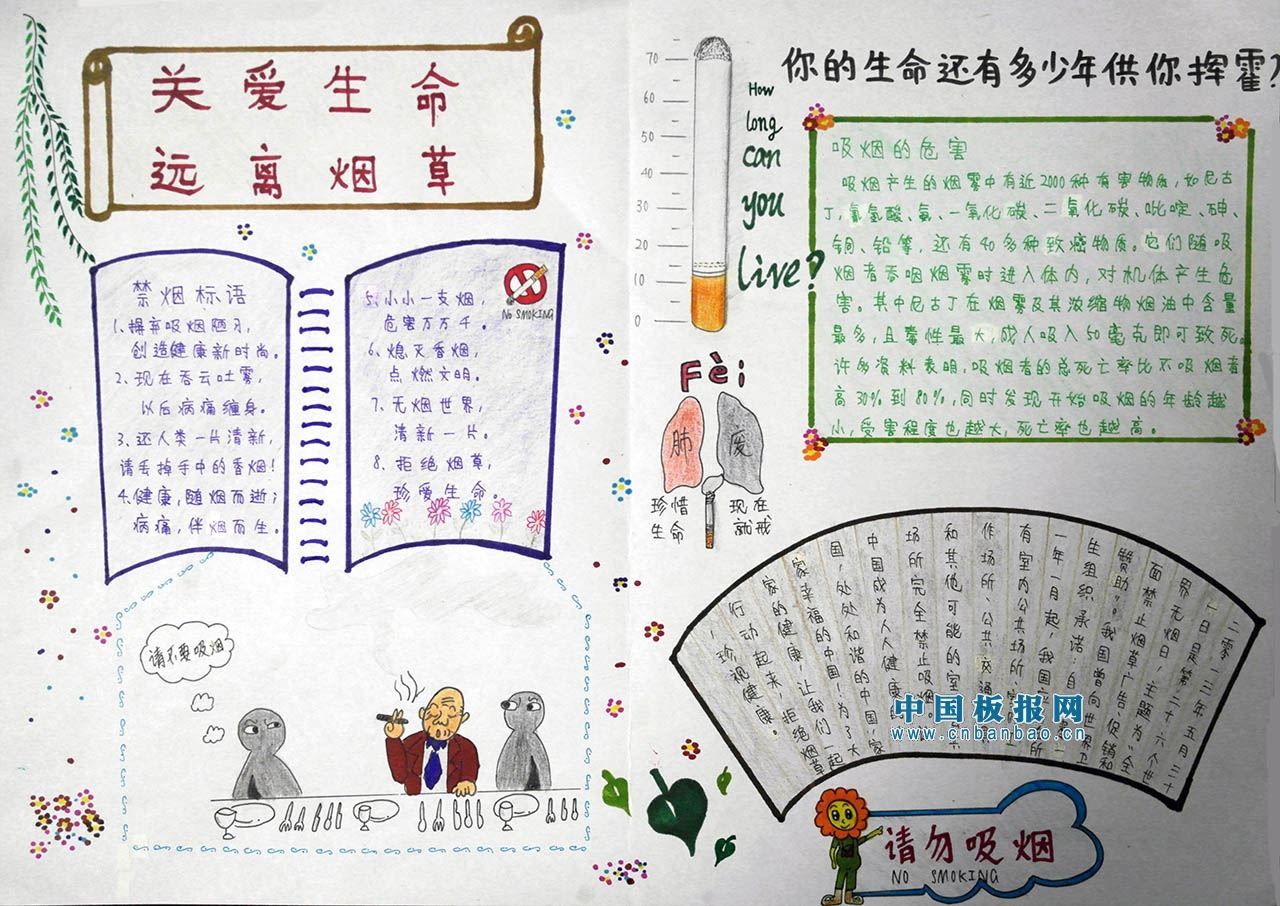 关爱生命
远离烟草
禁烟标语
1、摒弃吸烟陋习,
创造健康新时尚。
2、现在吞云吐雾,
以后病痛缠身。
3、还人类一片清新,
请丢掉手中的香烟!
4、健康,随烟而逝;
病痛,伴烟而生。
5、小小一支烟,
危害万万千。
6、熄灭香烟,
点燃文明。
7、无烟世界,
清新一片。
8、拒绝烟草,
珍爱生命。
NO SMOKING
请不要吸烟
70
60
50
40
30
20
10
0
How
long
can
you
live?
你的生命还有多少年供你挥霍?
吸烟的危害
吸烟产生的烟雾中有近2000种有害物质,如尼古
丁、氰氢酸、氨、一氧化碳、二氧化碳、吡啶、砷、
铜、铅等,还有40多种致癌物质。它们随吸
烟者吞咽烟雾时进入体内,对机体产生危
害。其中尼古丁在烟雾及其浓缩物烟油中含量
最多,且毒性最大,成人吸入50毫克即可致死。
许多资料表明,吸烟者的总死亡率比不吸烟者
高30%到80%,同时发现开始吸烟的年龄越
小,受害程度也越大,死亡率也越高。
Fèi
肺
废
珍惜
生命
现在
就戒
二零一三年五月三十
一日是第二十六个世
界无烟日,主题为“全
面禁止烟草广告、促销和
赞助”。我国曾向世界卫
生组织承诺:自
一年一月起,我国 所
有室内公共场所、
作场所、公共交通
和其他可能的室
场所完全禁止吸烟。
中国成为人人健康
国,处处和谐的中国,家
家幸福的中国!为了大
家的健康,让我们一起
行动起来,拒绝烟草
,珍视健康。
中国板报网
www.cnbanbao.cn
请勿吸烟
NO SMOKING